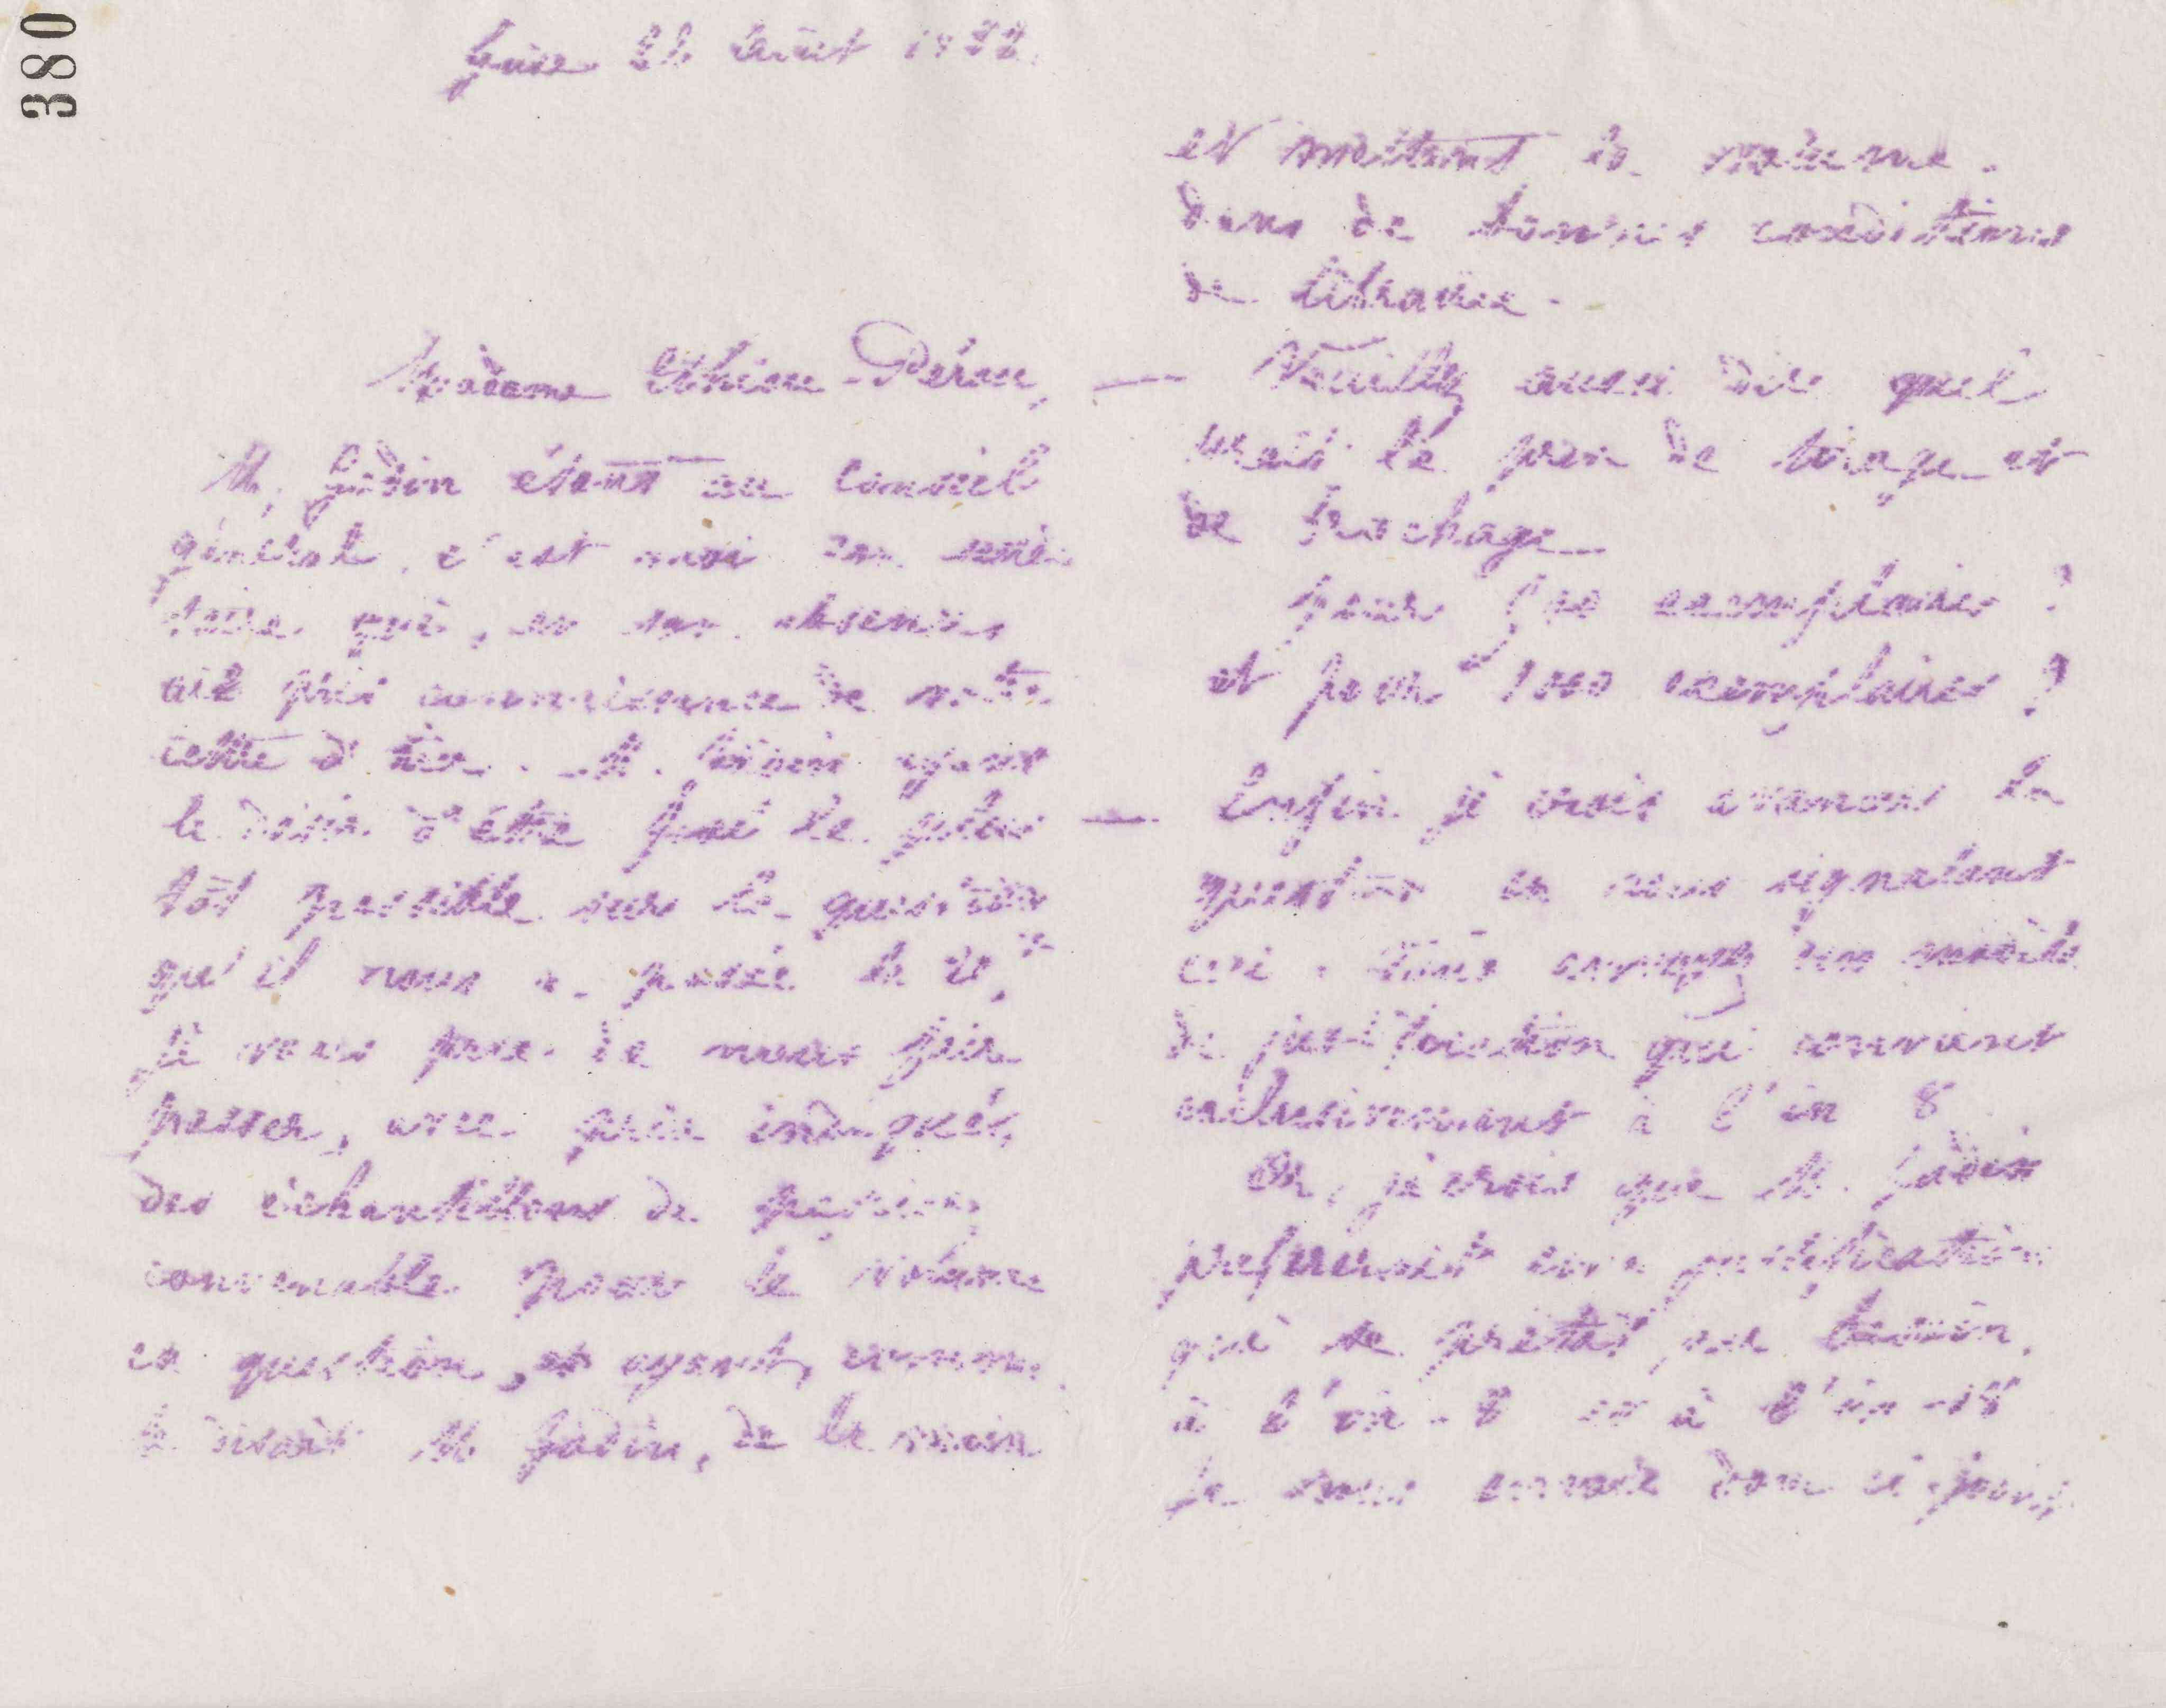 380
Guise 22 Août 18
Madame Ethiou-Pérou,
M. Godin étant au Conseil
général, c'est moi son secré-
taire qui, en son absence,
ait pris connaissance de votre
lettre d'hier. M. Godin ayant
le désir d'être fixé le plus
tôt possible sur la question
qu'il vous a posée le
je vous prie de nous faire
passer, avec prix indiqués,
des échantillons de papier
convenable pour le volume
en question, et ayant, comme
le disait M. Godin, de la main
et mettant le volume
dans de bonnes conditions
de librairie.
— Veuillez aussi dire quel
serait le prix de tirage et
de brochage
pour 500 exemplaires ?
et pour 1000 exemplaires ?
— Enfin je crois avancer la
question en vous signalant
ceci. Vous envoyez un modèle
de justification qui convient
exclusivement à l'in 8
Or, je crois que M. Godin
préfèrerait une justification
qui se prêtât, au besoin,
à l'in-8 et à l'in-18
Je vous envoie donc ci-joint,